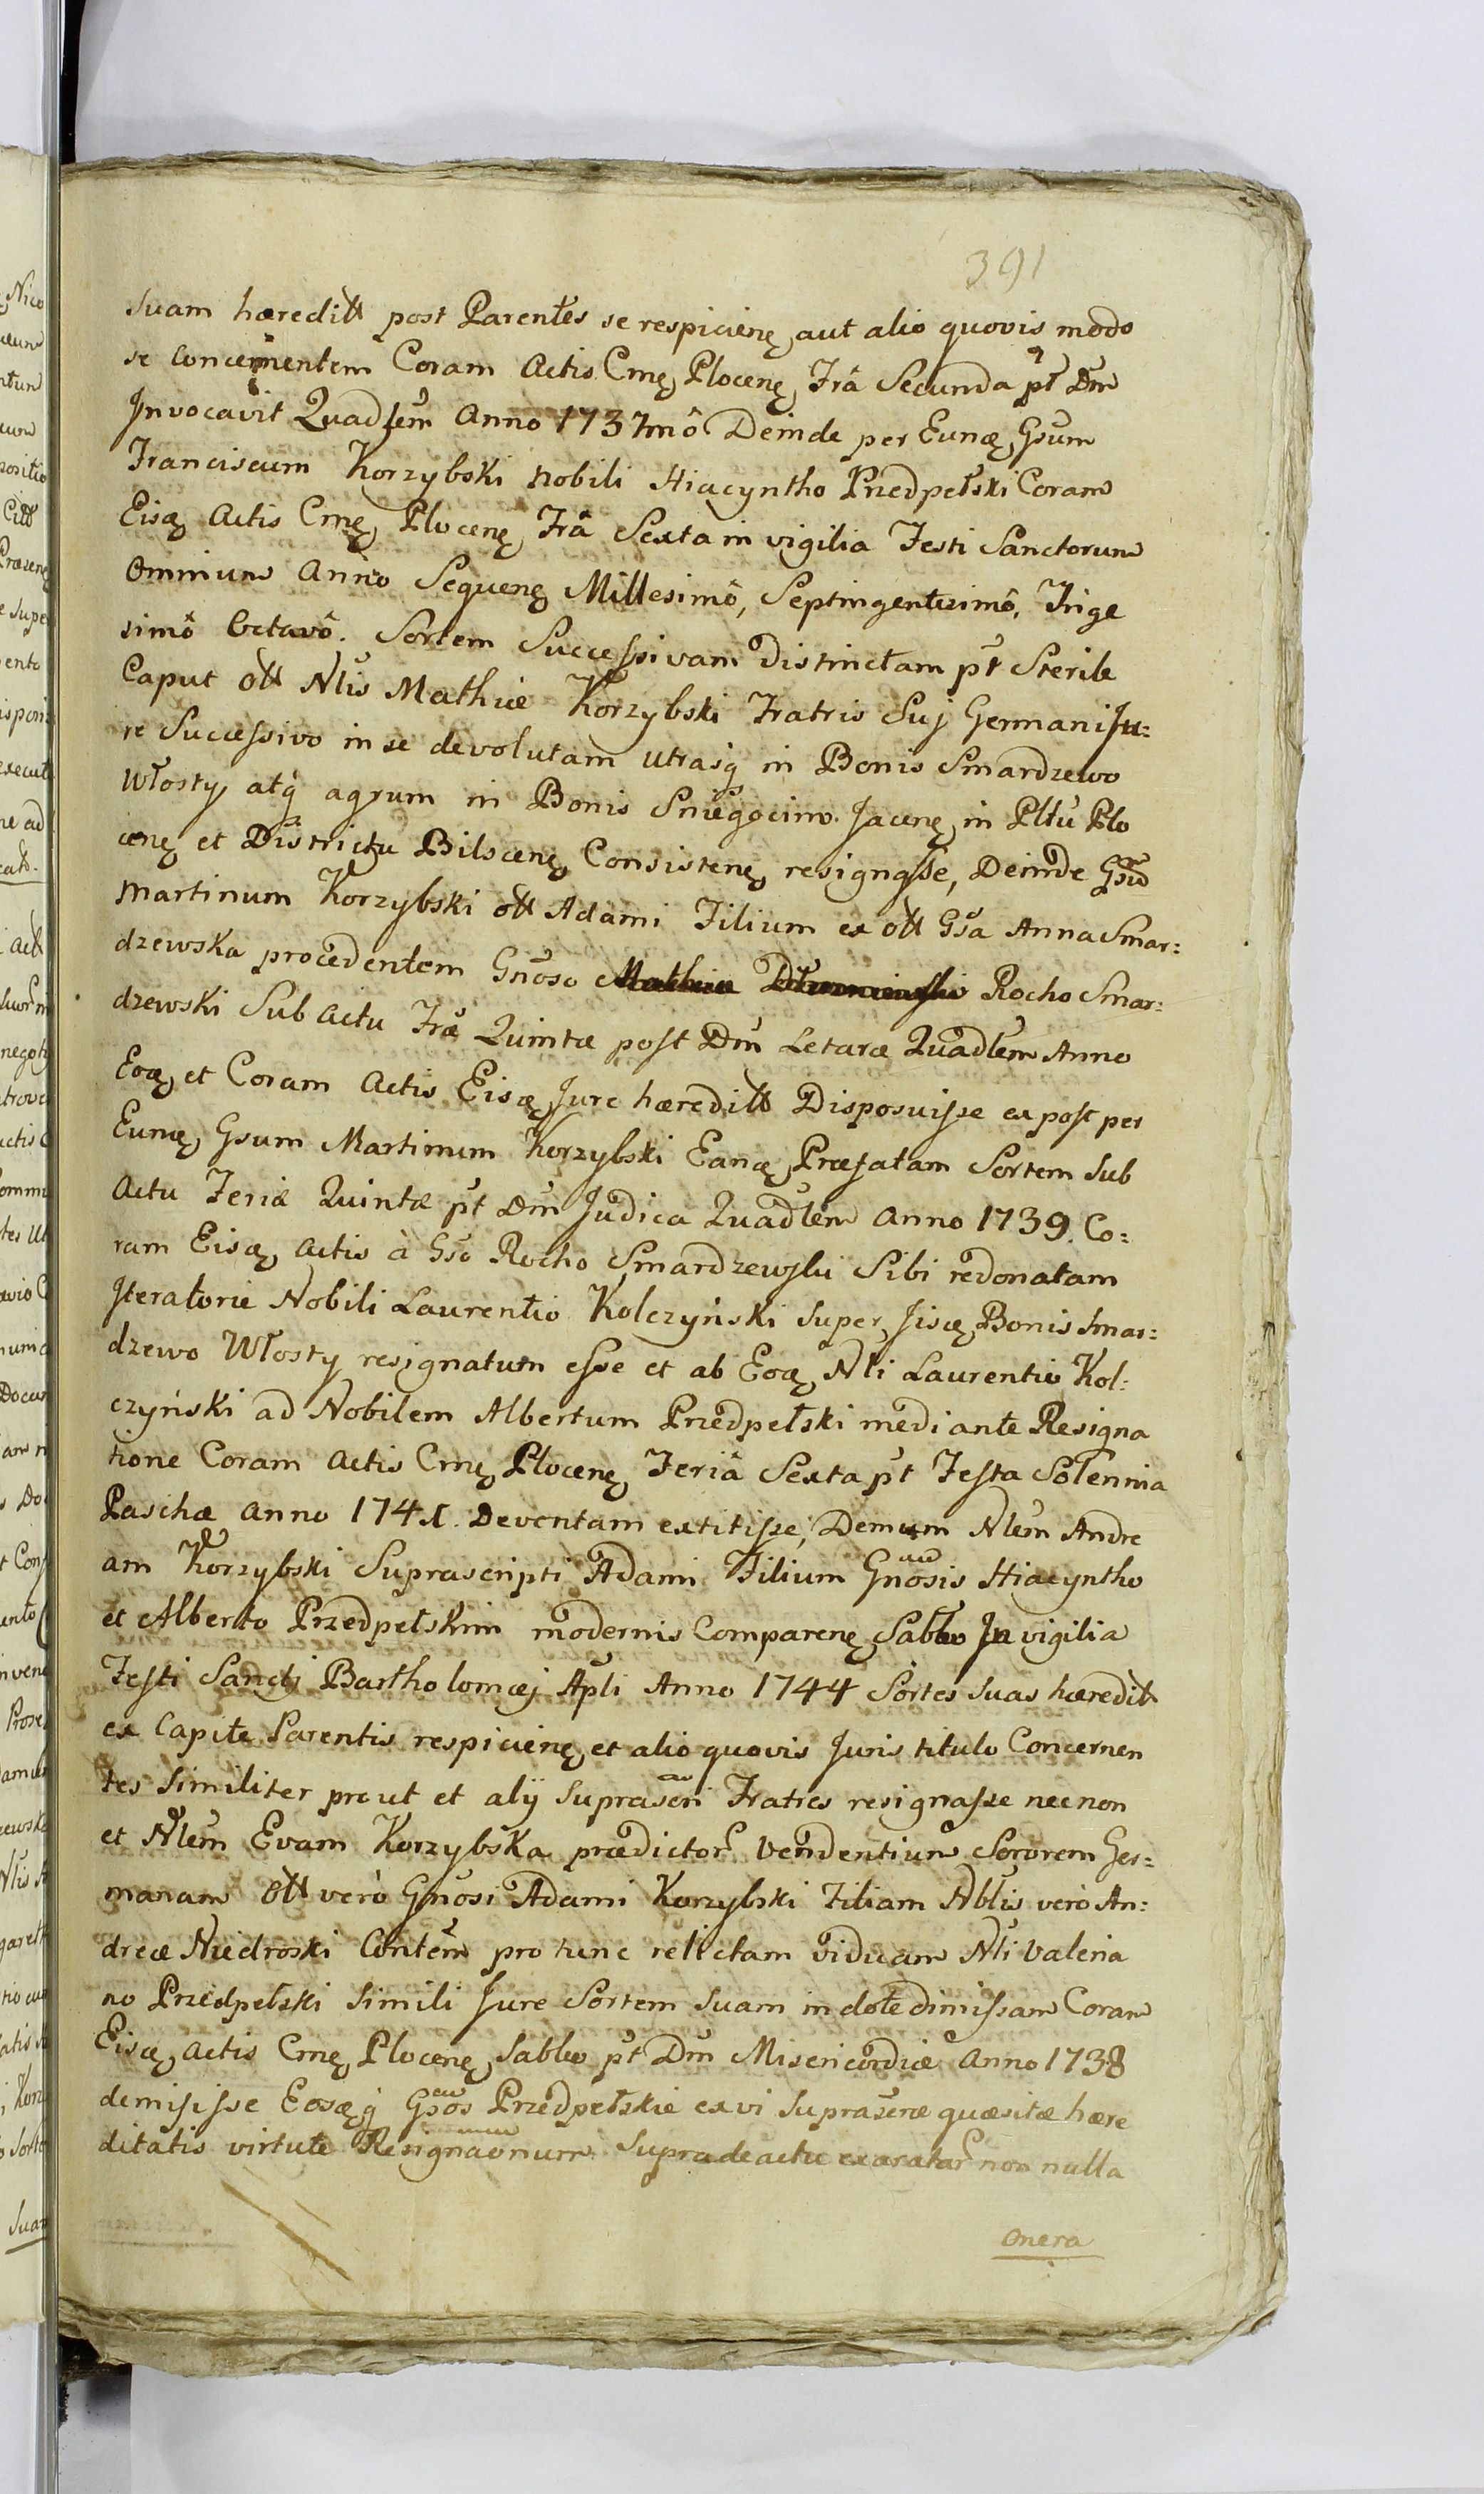 391
suam hæreditt post Parentes se respicienę, aut alio quovis modo
se concernentem Coram Actis Crnę, Plocenę, Frâ Secunda pt Dm̃
Invocavit Quadlem̃ Anno 1737mô Deinde per Eunę, Gsum
Franciscum Korzybski Nobili Hiacyntho Przedpełski Coram
Eisę, Actis Crnę, Plocenę, Frâ Sexta in vigilia Festi Sanctorum
Omnium Anno Sequenę, Millesimô, Septingentesimô, Trige
simô Octavô. Sortem Successivam distinctam pt Sterile
Caput ott Nlis Mathiæ Korzybski Fratris Suj Germani Ju:
re Successivo in se devolutam utrasq̃ in Bonis Smardzewo
Włosty, atq̃ agrum in Bonis Sniegocino Jacenę, in Pltu Plo
cenę, et Districtu Bilscenę, Consistenę, resignasse, Deinde Gsũ
Martinum Korzybski ott Adami Filium ex ott Gsa Anna Smar:
dzewska procedentem Gnoso Rocho Smar:
dzewski Sub Actu Fræ Quintæ post Dm̃ Letaræ Quadlem Anno
Eoę, et Coram Actis Eisę, Jure hæreditt Disposuisse ex post per
Eumę, Gsum Martinum Korzybski Eanę, Præfatam Sortem Sub
Actu Feriæ Quintæ pt Dm̃ Judica Quadlem Anno 1739. Co:
ram Eisę, Actis à Gso Rocho Smardzewski Sibi redonatam
Iteratorie Nobili Laurentio Kolczyński super Jisę, Bonis Smar:
dzewo Włosty resignatum esse et ab Eoę, Nli Laurentio Kol:
czyński ad Nobilem Albertum Przedpełski mediante Resigna
tione Coram Actis Crnę, Plocenę, Feriâ Sexta pt Festa Solennia
Paschæ Anno 1741. Deventam extitisse, Demum Nlem̃ Andre
am Korzybski Suprascripti Adami Filium Gnosis Hiacyntho
et Alberto Przedpełskim modernis Comparenę, Sabbo In vigilia
Festi Sancti Bartholomæj Apli Anno 1744 Sortes suas hæredit
ex Capite Parentis respicienę, et alio quovis Juris titulo Concernen
tes similiter prout et alij suprascri Fratres resignasse nec non
et Nlem̃ Evam Korzybska prædictor̃ Vendentium Sororem Ger:
manam ott verò Gnosi Adami Korzybski Filiam Nblis verò An:
dreæ Niedroski Contem̃ pro tunc relictam Viduam Nli Valeria
no Przedpełski simili Jure Sortem suam in dote dimissam Coram
Eisę, Actis Crnę, Plocenę, Sabbo pt Dm̃ Misericordiæ Anno 1738
demisisse Eosęq̃ Gsos Przedpełskie ex vi suprascræ quæsitæ hære
ditatis virtute Resignaonum supra de actu exaratar̃ non nulla
onera